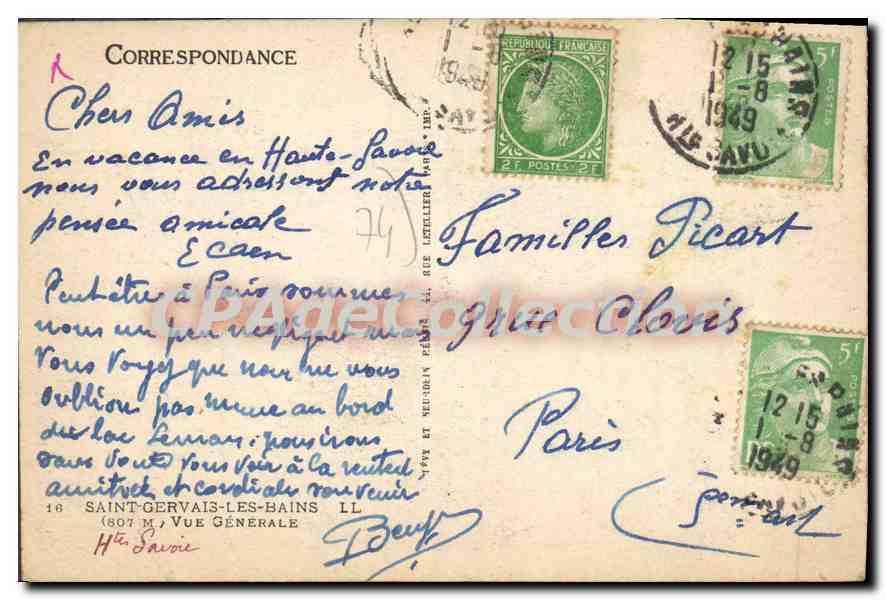 CORRESPONDANCE
Chers Amis
En vacance en Haute-Savoie
nous vous adressont notre
pensée amicale
E Caen
Peut-être à Paris sommes
nous un peu négligent mais
Vous Voyez que nous ne vous
oublions pas même au bord
du lac Leman. pourirons
sans doute vous voir à la rentrée
amitiés et cordiale souvenir
16 SAINT-GERVAIS-LES-BAINS LL
(807 M.) VUE GÉNÉRALE
Htes Savoie
74
LÉVY ET NEURDEIN RÉUNIS, 44, RUE LETELLIER, PARIS - IMP.
Familles Picart
9 rue Clovis
Paris
5
RÉPUBLIQUE FRANÇAISE
2F. POSTES 2F.
12 15
1 -8
1949
HTE SAVOIE
5f
POSTES
5f
12 15
1 -8
1949
CPAdeCollection